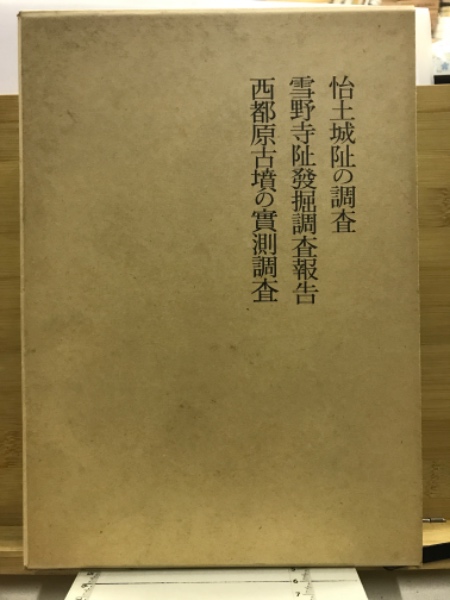 怡土城阯の調査
雪野寺阯發掘調査報告
西都原古墳の實測調査